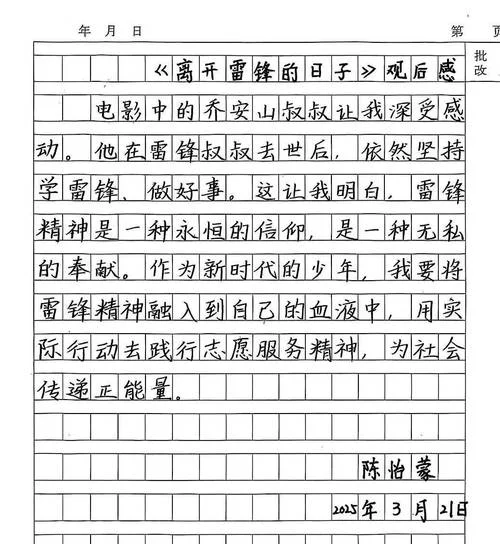 年 月 日 第 页
批改
《离开雷锋的日子》观后感
电影中的乔安山叔叔让我深受感
动。他在雷锋叔叔去世后，依然坚持
学雷锋、做好事。这让我明白，雷锋
精神是一种永恒的信仰，是一种无私
的奉献。作为新时代的少年，我要将
雷锋精神融入到自己的血液中，用实
际行动去践行志愿服务精神，为社会
传递正能量。
陈怡蒙
2025年3月21日